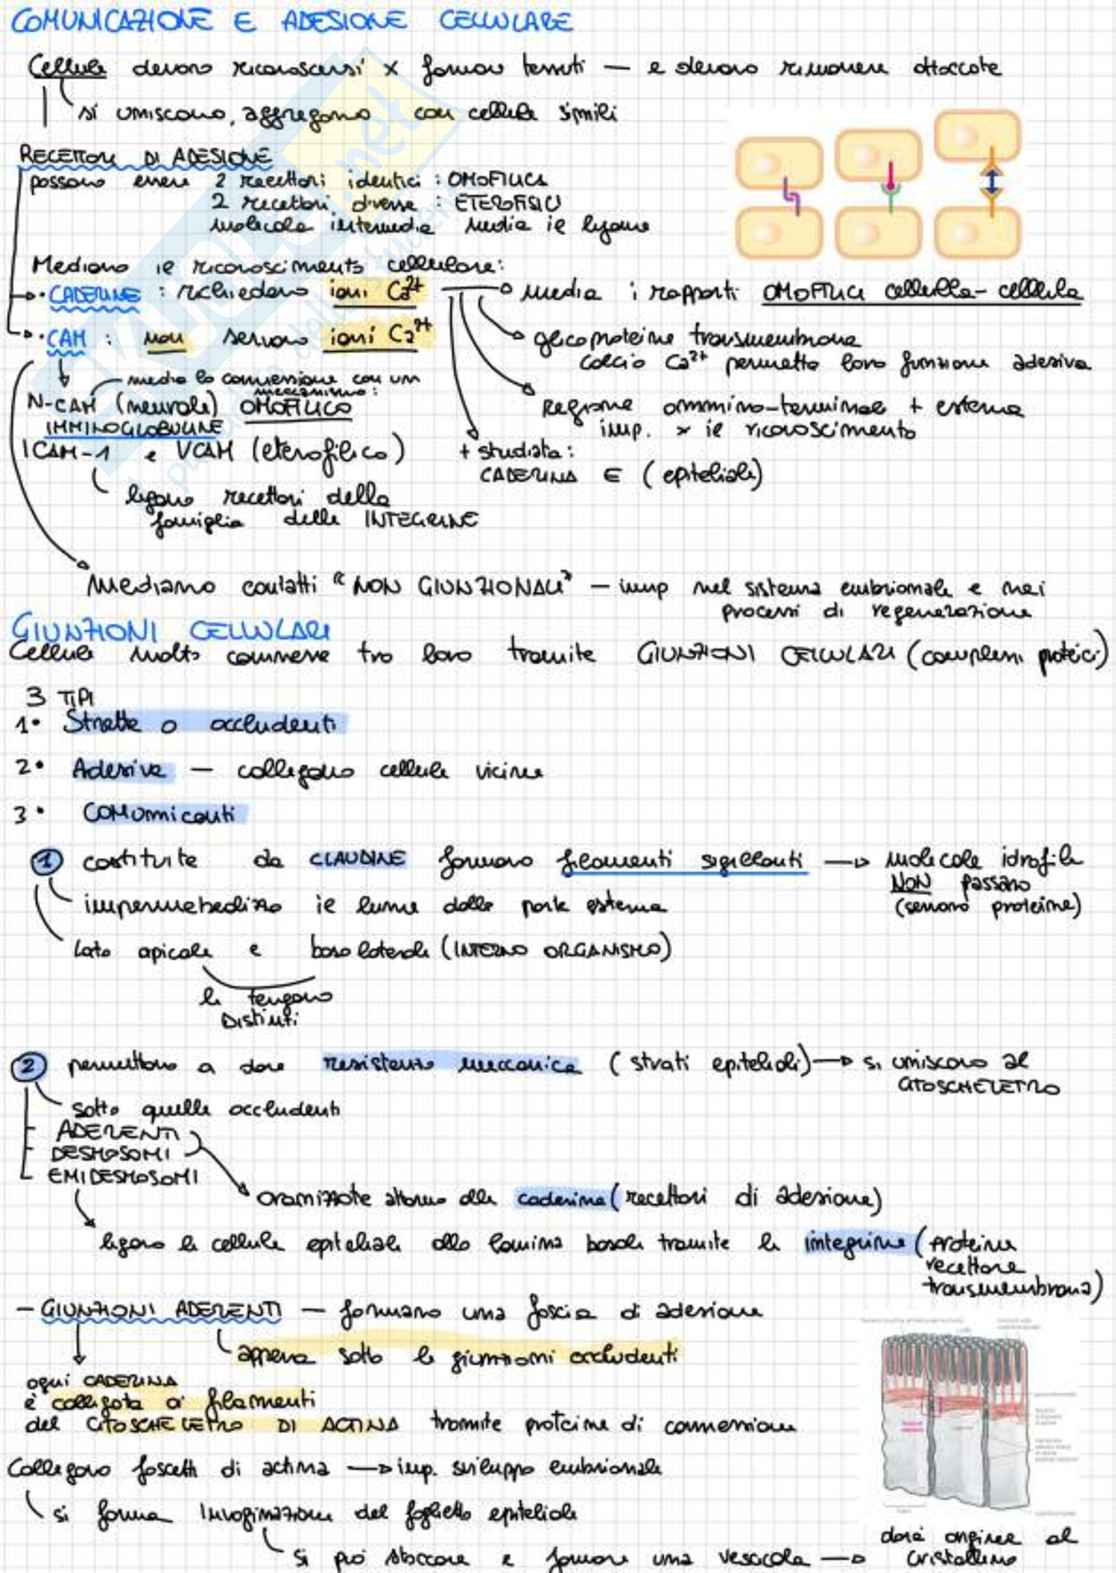 COMUNICAZIONE E ADESIONE CELLULARE
Cellule devono riconoscersi x formare tessuti — e devono rimanere attaccate
si uniscono, aggregano con cellule simili
RECETTORI DI ADESIONE
possono essere 2 recettori identici : OMOFILICA
2 recettori diverse : ETEROFILICI
molecola intermedia media il legame
Mediano il riconoscimento cellulare:
• CADERINE : richiedono ioni Ca2+ → media i rapporti OMOFILICI cellula-cellula
• CAM : non servono ioni Ca2+
glicoproteine transmembrana
calcio Ca2+ permette loro funzione adesiva
media la connessione con un meccanismo:
N-CAM (neurale) OMOFILICO
IMMINOGLOBULINE
Regione ammino-terminale + esterna
imp. x il riconoscimento
ICAM-1 e VCAM (eterofilico)
+ studiata:
CADERINA E (epiteliale)
legano recettori della
famiglia delle INTEGRINE
Mediano contatti "NON GIUNZIONALI" — imp nel sistema embrionale e nei
processi di regenerazione
GIUNZIONI CELLULARI
Cellule molto connesse tra loro tramite GIUNZIONI CELLULARI (complessi proteici)
3 TIPI
1• Strette o occludenti
2• Adesive — collegano cellule vicine
3• COMUnicanti
1 costituite da CLAUDINE formano filamenti sigillanti → molecole idrofile
NON passano
(servono proteine)
impermeabilizzano il lume dalla parte esterna
lato apicale e basolaterale (INTERNO ORGANISMO)
le tengono
DIstinti
2 permettono a dare resistenza meccanica (strati epiteliali) → si uniscono al
CITOSCHELETRO
sotto quelle occludenti
ADERENTI
DESMOSOMI
EMIDESMOSOMI
organizzate attorno alle caderine (recettori di adesione)
legano le cellule epiteliale alla lamina basale tramite le integrine (proteine
recettore
transmembrana)
- GIUNZIONI ADERENTI — formano una fascia di adesione
appena sotto le giunzioni occludenti
ogni CADERINA
è collegata a filamenti
del CITOSCHELETRO DI ACTINA tramite proteine di connessione
Collegano fascetti di actina → imp. sviluppo embrionale
si forma Invaginazione del foglietto epiteliale
si può staccare e formare una vescicola → darà origine al
cristallino